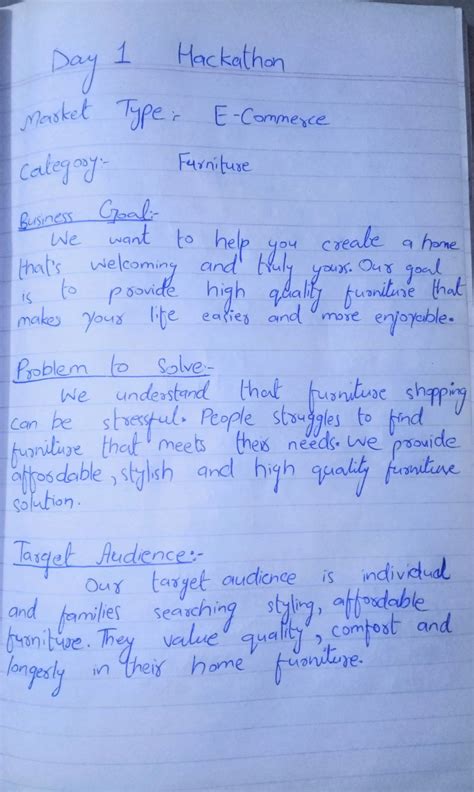 Day 1 Hackathon
Market Type:- E-Commerce
Category:- Furniture
Business Goal:-
We want to help you create a home
that's welcoming and truly yours. Our goal
is to provide high quality furniture that
makes your life easier and more enjoyable.
Problem to Solve:-
We understand that furniture shopping
can be stressful. People struggles to find
furniture that meets their needs. We provide
affordable, stylish and high quality furniture
solution.
Target Audience:-
Our target audience is individual
and families searching styling, affordable
furniture. They value quality, comfort and
longerly in their home furniture.